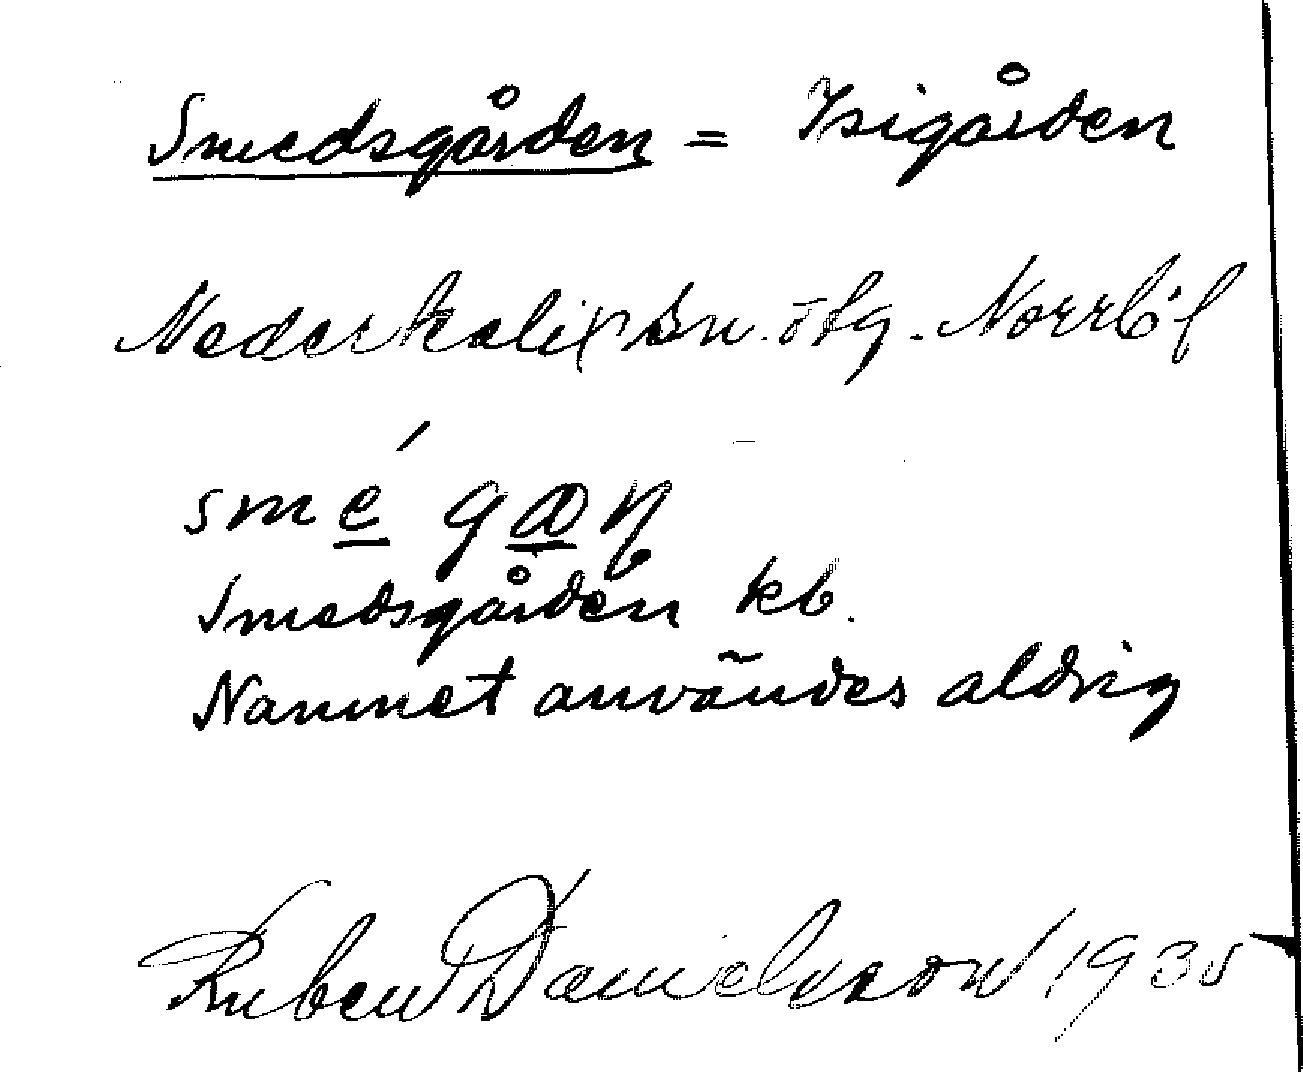 Smedsgården = Isigården
Nederkalix sn. ötg. Norrb. l
smé gæn
Smedsgården kb.
Namnet användes aldrig
Ruben Danielsson 1935